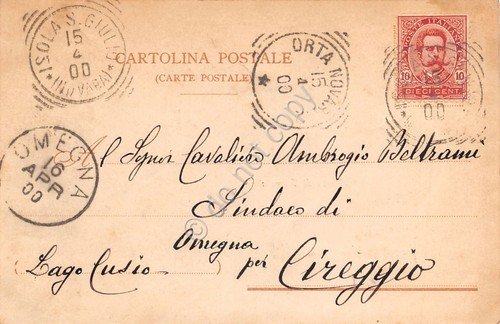 ISOLA S. GIULIO (NOVARA)
15
4
00
CARTOLINA POSTALE
(CARTE POSTALE)
ORTA NOVAR
15
4
00
POSTE ITALIANE
10 10
DIECI CENT.
15
00
OMEGNA
16
APR
00
Al Signor Cavaliere Ambrogio Beltrami
Sindaco di
Omegna
Lago Cusio per Cireggio
do not copy